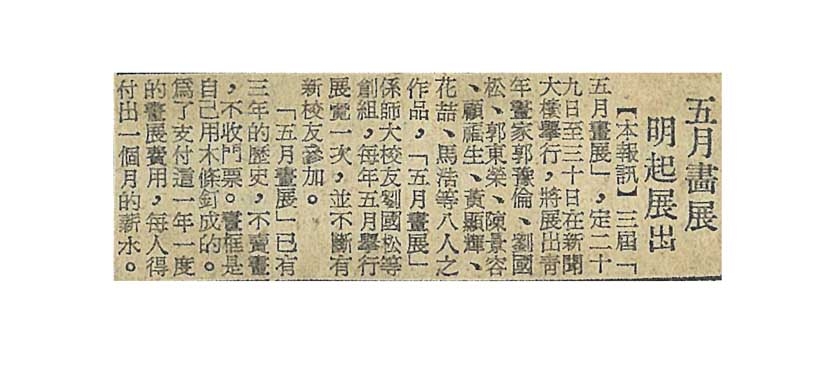 五月畵展
明起展出
【本報訊】三屆「
五月畵展」，定二十
九日至三十日在新聞
大樓舉行，將展出靑
年畵家郭豫倫、劉國
松、郭東榮、陳景容
、顧福生、黃顯輝、
花喆、馬浩等八人之
作品，「五月畵展」
係師大校友劉國松等
創組，每年五月舉行
展覽一次，並不斷有
新校友參加。
「五月畵展」已有
三年的歷史，不賣畵
，不收門票。畵框是
自己用木條釘成的。
爲了支付這一年一度
的畵展費用，每人得
付出一個月的薪水。